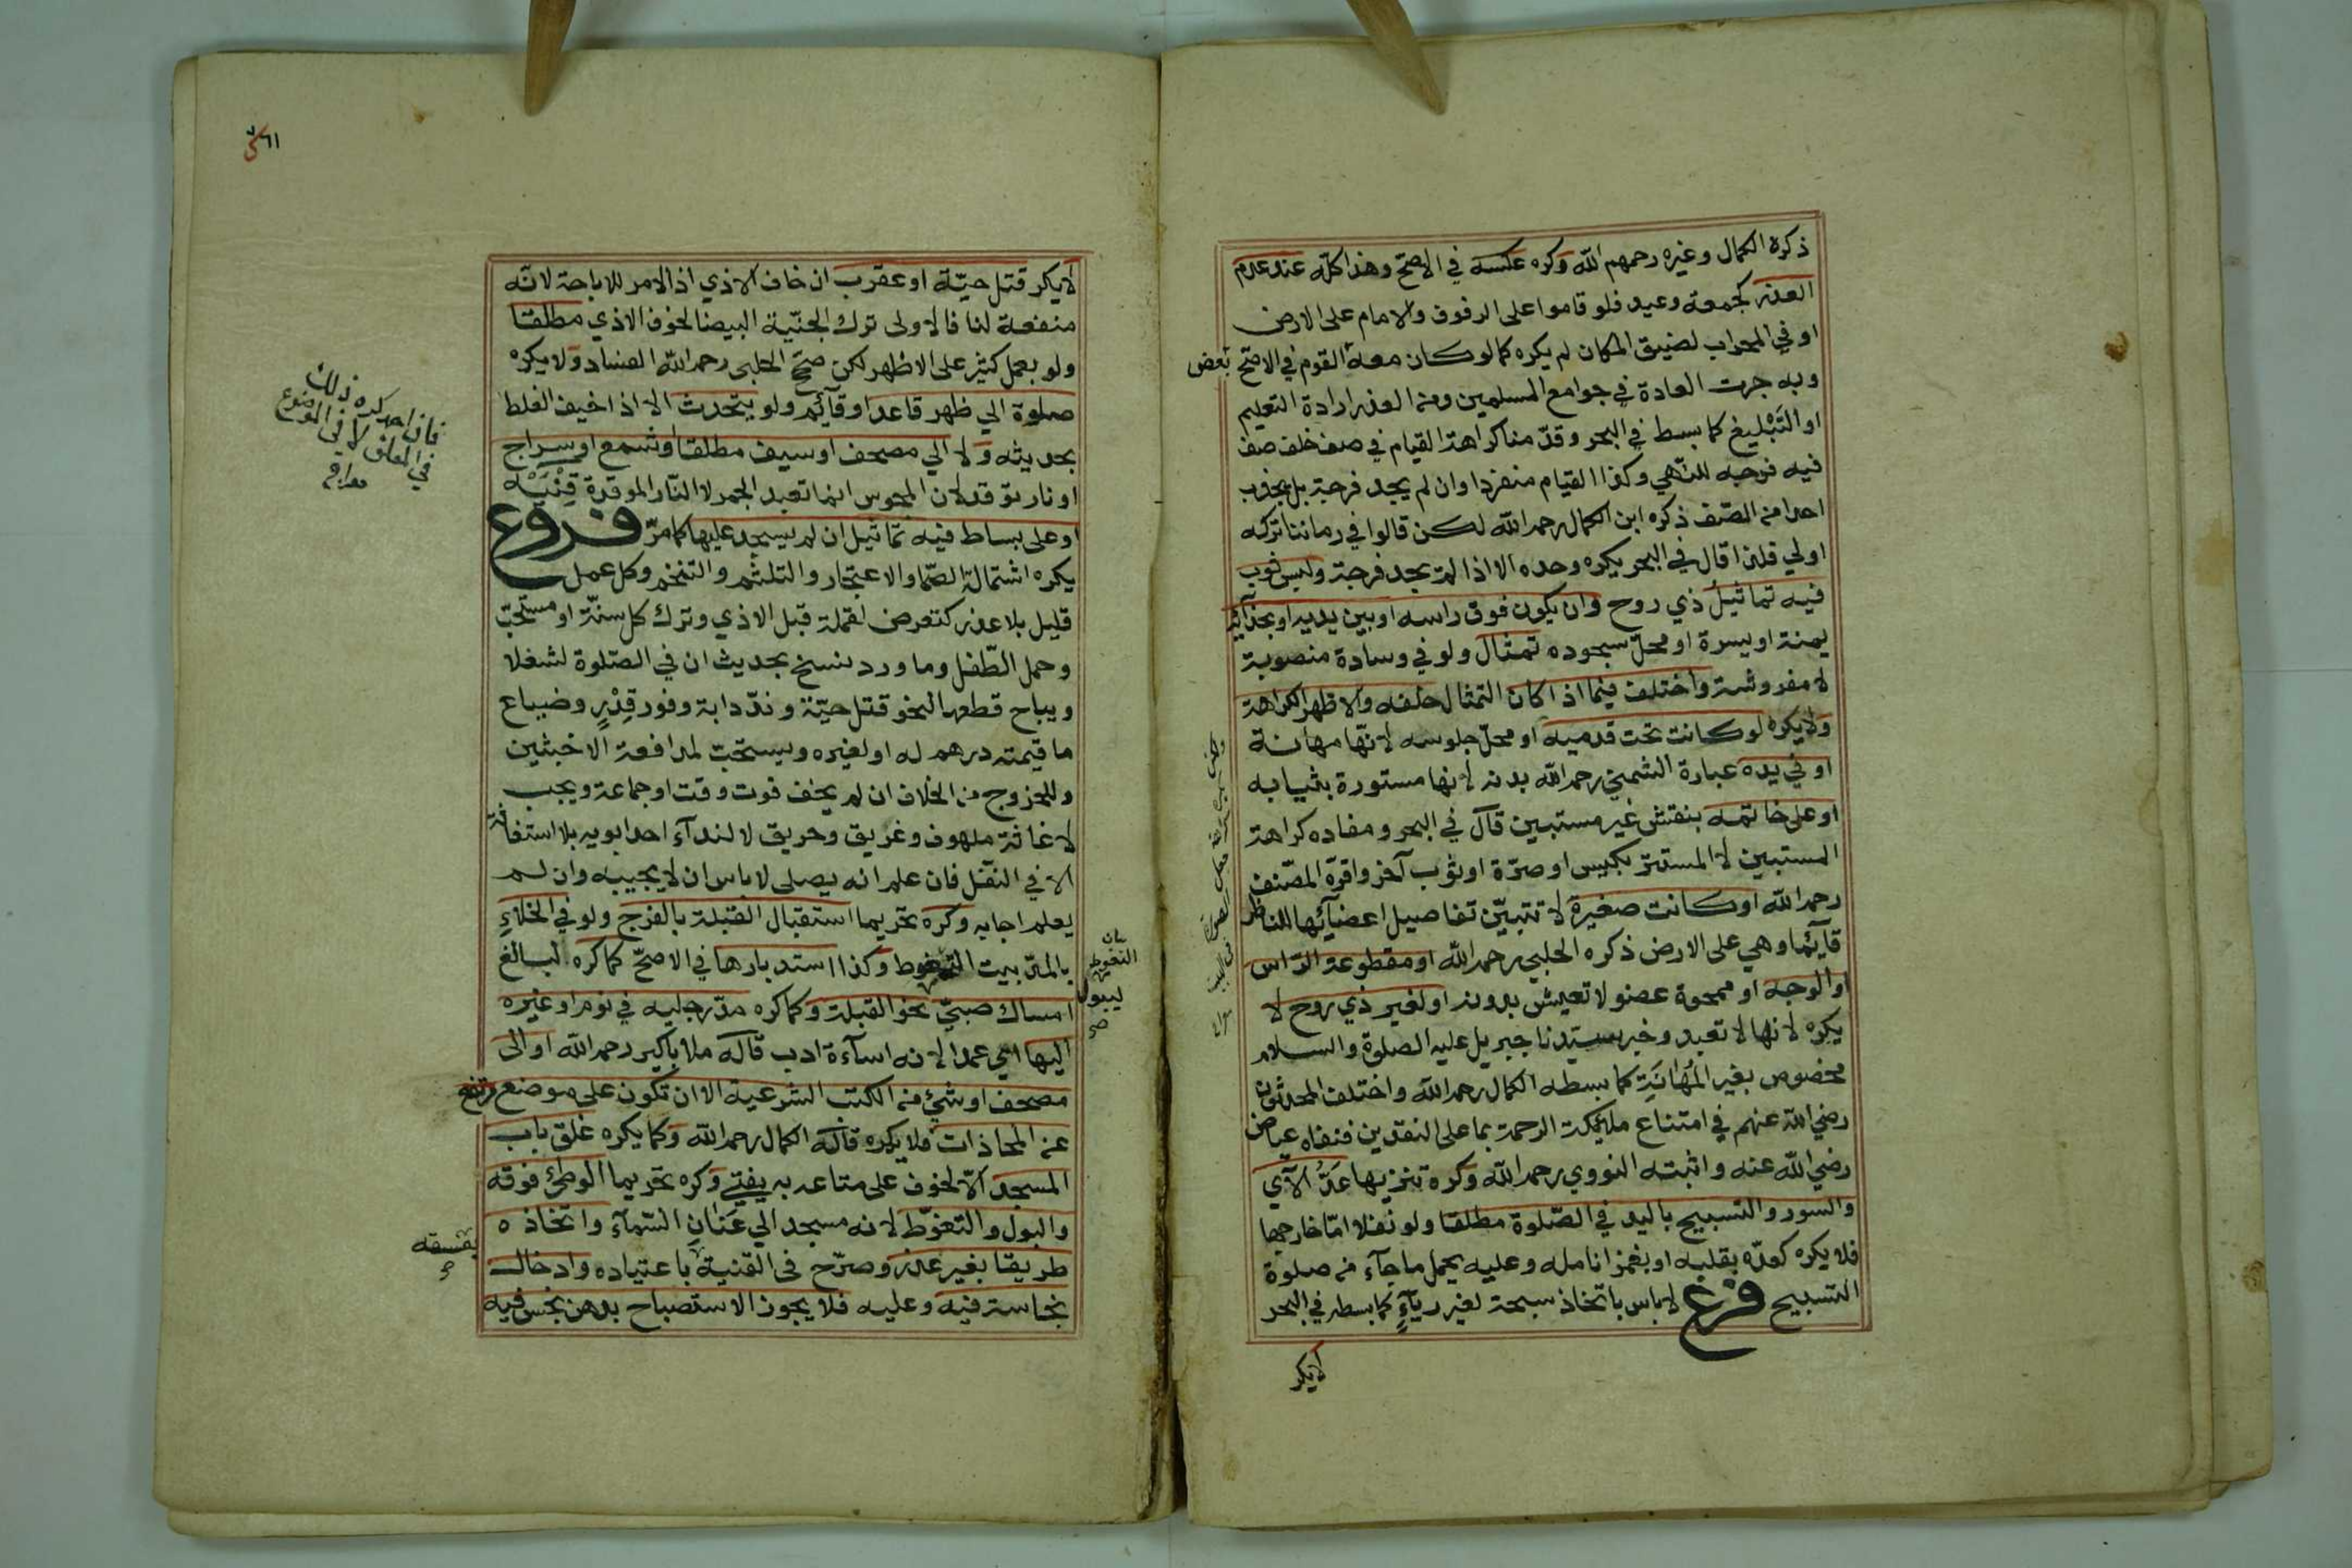 ذكره الكمال وغيره رحمهم الله وكره عكسه في الاصح وهذا كله عند عدم
العذر كجمعة وعيد فلو قاموا على الرفوف والامام على الارض
او في المحراب لضيق المكان لم يكره كما لو كان معه القوم في الاصح
بعض
وبه جرت العادة في جوامع المسلمين ومن العذر ارادة التعليم
او التبليغ كما بسط في البحر وقدمنا كراهة القيام في صف خلف صف
فيه فرجه للنهي وكذا القيام منفردا وان لم يجد فرجة بل يجذب
احدا من الصف ذكره ابن الكمال رحمه الله لكن قالوا في زماننا تركه
اولي فلذا قال في البحر يكره وحده الا اذا لم يجد فرجة ولبس ثوب
فيه تماثيل ذي روح وان يكون فوق راسه او بين يديه او بحذائه
يمنة او يسرة او محل سجوده تمثال ولو في وسادة منصوبة
لا مفروشة واختلف فيما اذا كان التمثال خلفه والاظهر الكراهة
ولا يكره لو كانت تحت قدميه او محل جلوسه لانها مهانة
او في يده عبارة الشمني رحمه الله بدنه لانها مستورة بثيابه
او على خاتمه بنقش غير مستبين قال في البحر ومفاده كراهة
المستبين لا المستتر بكيس او صرة او ثوب آخر واقره المصنف
رحمه الله او كانت صغيرة لا تتبين تفاصيل اعضائها للناظر
قائما وهي على الارض ذكره الحلبي رحمه الله او مقطوعة الراس
او الوجه او ممحوة عضو لا تعيش بدونه او لغير ذي روح لا
يكره لانها لا تعبد وخبر سيدنا جبريل عليه الصلوة والسلام
مخصوص بغير المهانة كما بسطه الكمال رحمه الله واختلف المحدثون
رضي الله عنهم في امتناع ملئكة الرحمة بما على النقدين فنفاه عياض
رضي الله عنه واثبته النووي رحمه الله وكره تنزيها عد الآي
والسور والتسبيح باليد في الصلوة مطلقا ولو نفلا اما خارجها
فلا يكره كعده بقلبه او بغمز انامله وعليه يحمل ما جاء من صلوة
التسبيح فرع لا باس باتخاذ سبحة لغير رياء كما بسطه في البحر
لا يكره
٦١
لا يكره قتل حية او عقرب ان خاف الاذي اذ الامر للاباحة لانه
منفعة لنا فالاولى ترك الحية البيضا لخوف الاذي مطلقا
ولو بعمل كثير على الاظهر لكن صحح الحلبي رحمه الله الفساد ولا يكره
صلوة الي ظهر قاعد او قائم ولو يتحدث الا اذا خيف الغلط
بحديثه ولا الي مصحف او سيف مطلقا او شمع او سراج
او نار توقد لان المجوس انما تعبد الجمر لا النار الموقدة قنية
او على بساط فيه تماثيل ان لم يسجد عليها كما مر فروع
يكره اشتمالة الصما والاعتجار والتلثم والتنخم وكل عمل
قليل بلا عذر كتعرض لقملة قبل الاذي وترك كل سنة او مستحب
وحمل الطفل وما ورد نسخ بحديث ان في الصلوة لشغلا
ويباح قطعها لنحو قتل حية وند دابة وفور قدر وضياع
ما قيمته درهم له او لغيره ويستحب لمدافعة الاخبثين
وللخروج من الخلاف ان لم يخف فوت وقت او جماعة ويجب
لاغاثة ملهوف وغريق وحريق لا لنداء احد ابويه بلا استغاثة
الا في النفل فان علم انه يصلي لا باس ان لا يجيبه وان لم
يعلم اجابه وكره تحريما استقبال القبلة بالفرج ولو في الخلاء
بالمد بيت التغوط وكذا استدبارها في الاصح كما كره لبالغ
امساك صبي نحو القبلة وكما كره مد رجليه في نوم او غيره
اليها اي عمدا لانه اساءة ادب قاله ملا باكير رحمه الله او الى
مصحف او شيء من الكتب الشرعية الا ان تكون على موضع مرتفع
عن المحاذات فلا يكره قاله الكمال رحمه الله وكما يكره غلق باب
المسجد الا لخوف على متاعه به يفتى وكره تحريما الوطئ فوقه
والبول والتغوط لانه مسجد الي عنان السماء واتخاذه
طريقا بغير عذر وصرح في القنية باعتياده وادخال
نجاسة فيه وعليه فلا يجوز الاستصباح بدهن نجس فيه
بيان
التغوط
ليبول
صح
بفسقه